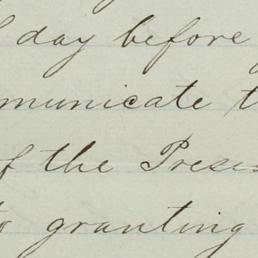 day before
municate
of the Presi
to granting